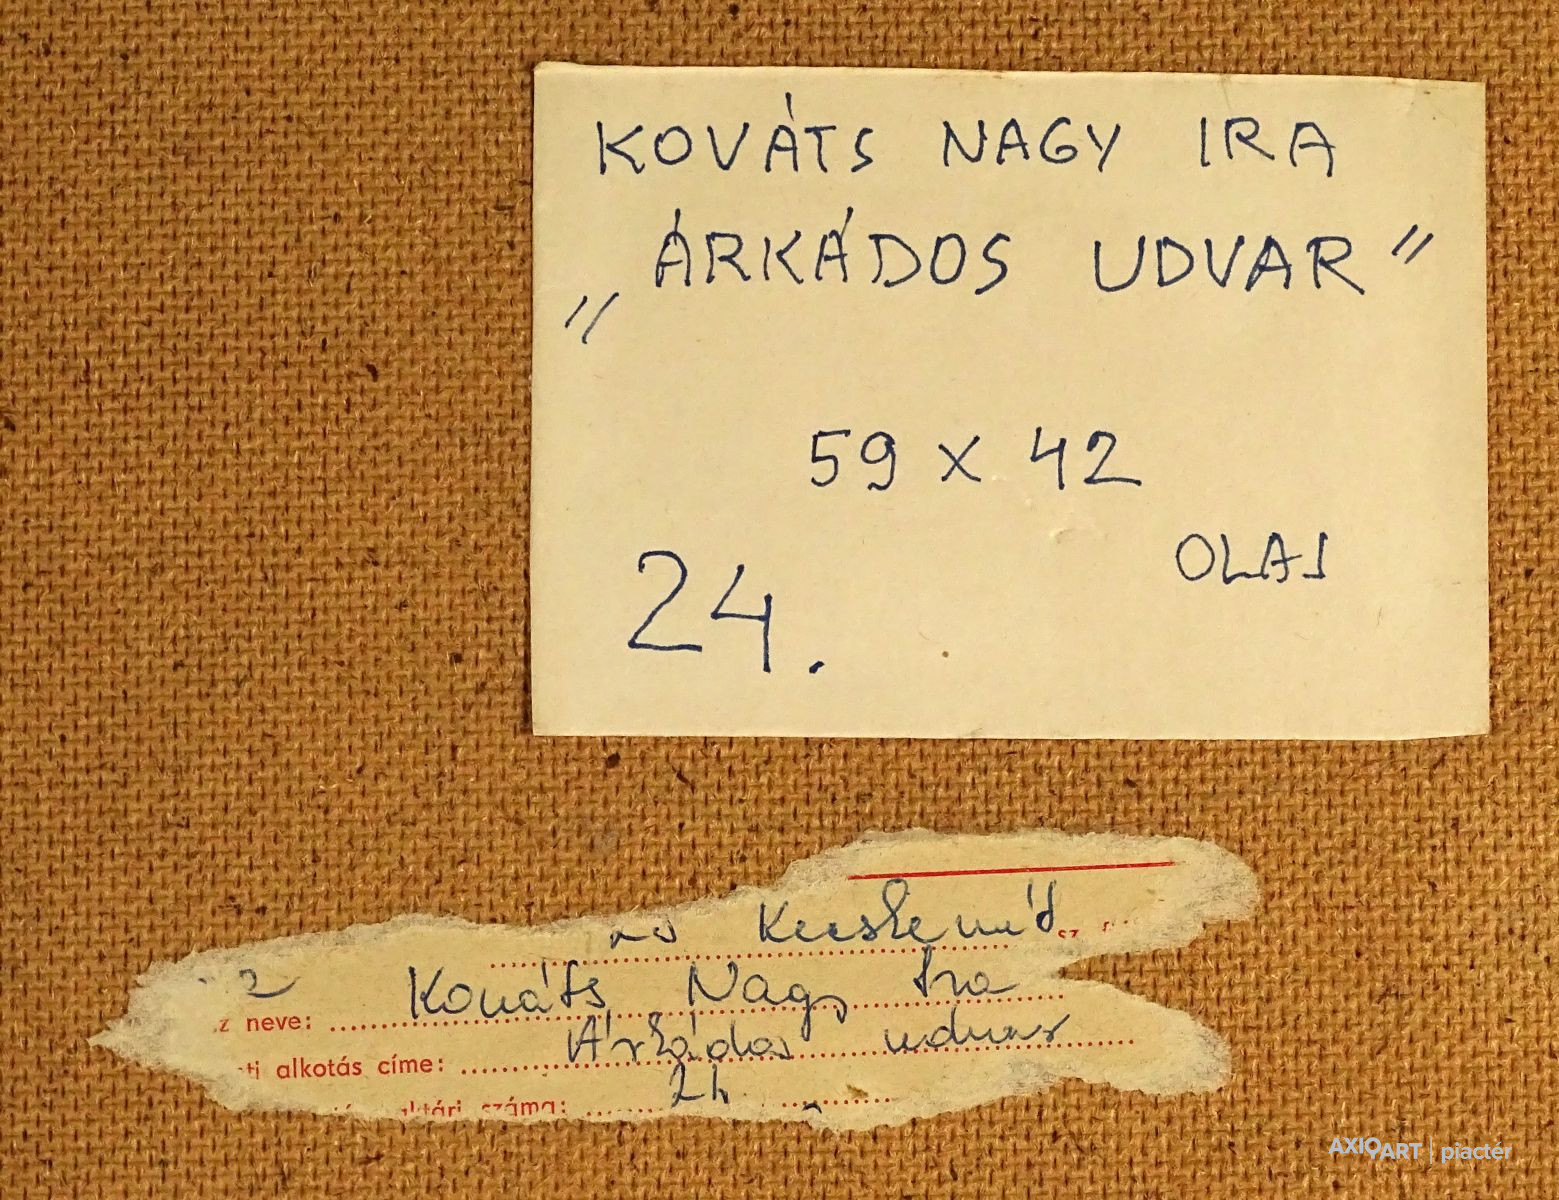 KOVÁTS NAGY IRA
„ÁRKÁDOS UDVAR”
59 x 42
OLAJ
24.
Kecskemét
2
z neve: Kováts Nagy Ira
ti alkotás címe: Árkádos udvar
aktári száma: 24
AXIOART | piactér